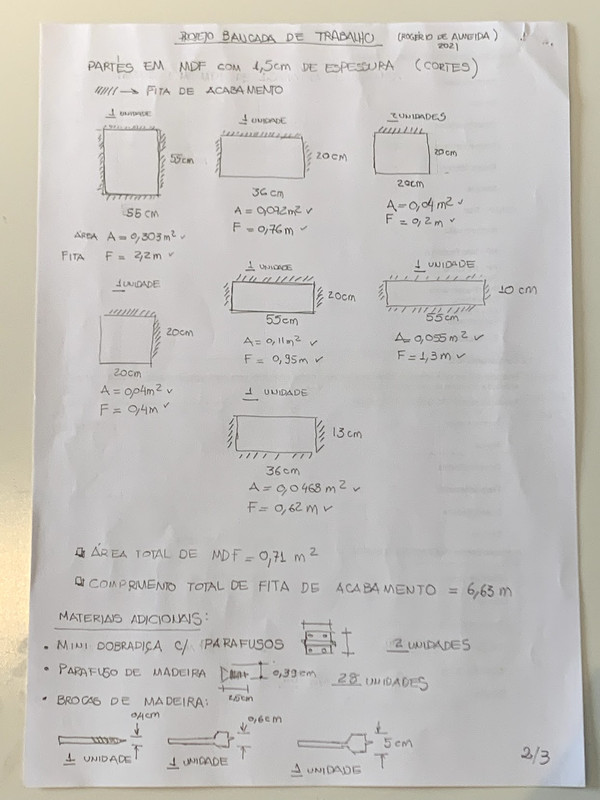 PROJETO BANCADA DE TRABALHO (ROGÉRIO DE ALMEIDA)
2021
PARTES EM MDF COM 1,5cm DE ESPESSURA (CORTES)
→ FITA DE ACABAMENTO
1 UNIDADE
55cm
55cm
ÁREA A = 0,303m² ✓
FITA F = 2,2m ✓
1 UNIDADE
20cm
36cm
A = 0,072m² ✓
F = 0,76m ✓
2 UNIDADES
20cm
20cm
A = 0,04m² ✓
F = 0,2m ✓
1 UNIDADE
20cm
20cm
A = 0,04m² ✓
F = 0,4m ✓
1 UNIDADE
20cm
55cm
A = 0,11m² ✓
F = 0,95m ✓
1 UNIDADE
10cm
55cm
A = 0,055m² ✓
F = 1,3m ✓
1 UNIDADE
13cm
36cm
A = 0,0468m² ✓
F = 0,62m ✓
ÁREA TOTAL DE MDF = 0,71 m²
COMPRIMENTO TOTAL DE FITA DE ACABAMENTO = 6,63 m
MATERIAIS ADICIONAIS:
• MINI DOBRADIÇA C/ PARAFUSOS 2 UNIDADES
• PARAFUSO DE MADEIRA 0,39cm 28 UNIDADES
• BROCAS DE MADEIRA:
0,4cm
1 UNIDADE
0,6cm
1 UNIDADE
5cm
1 UNIDADE
2/3